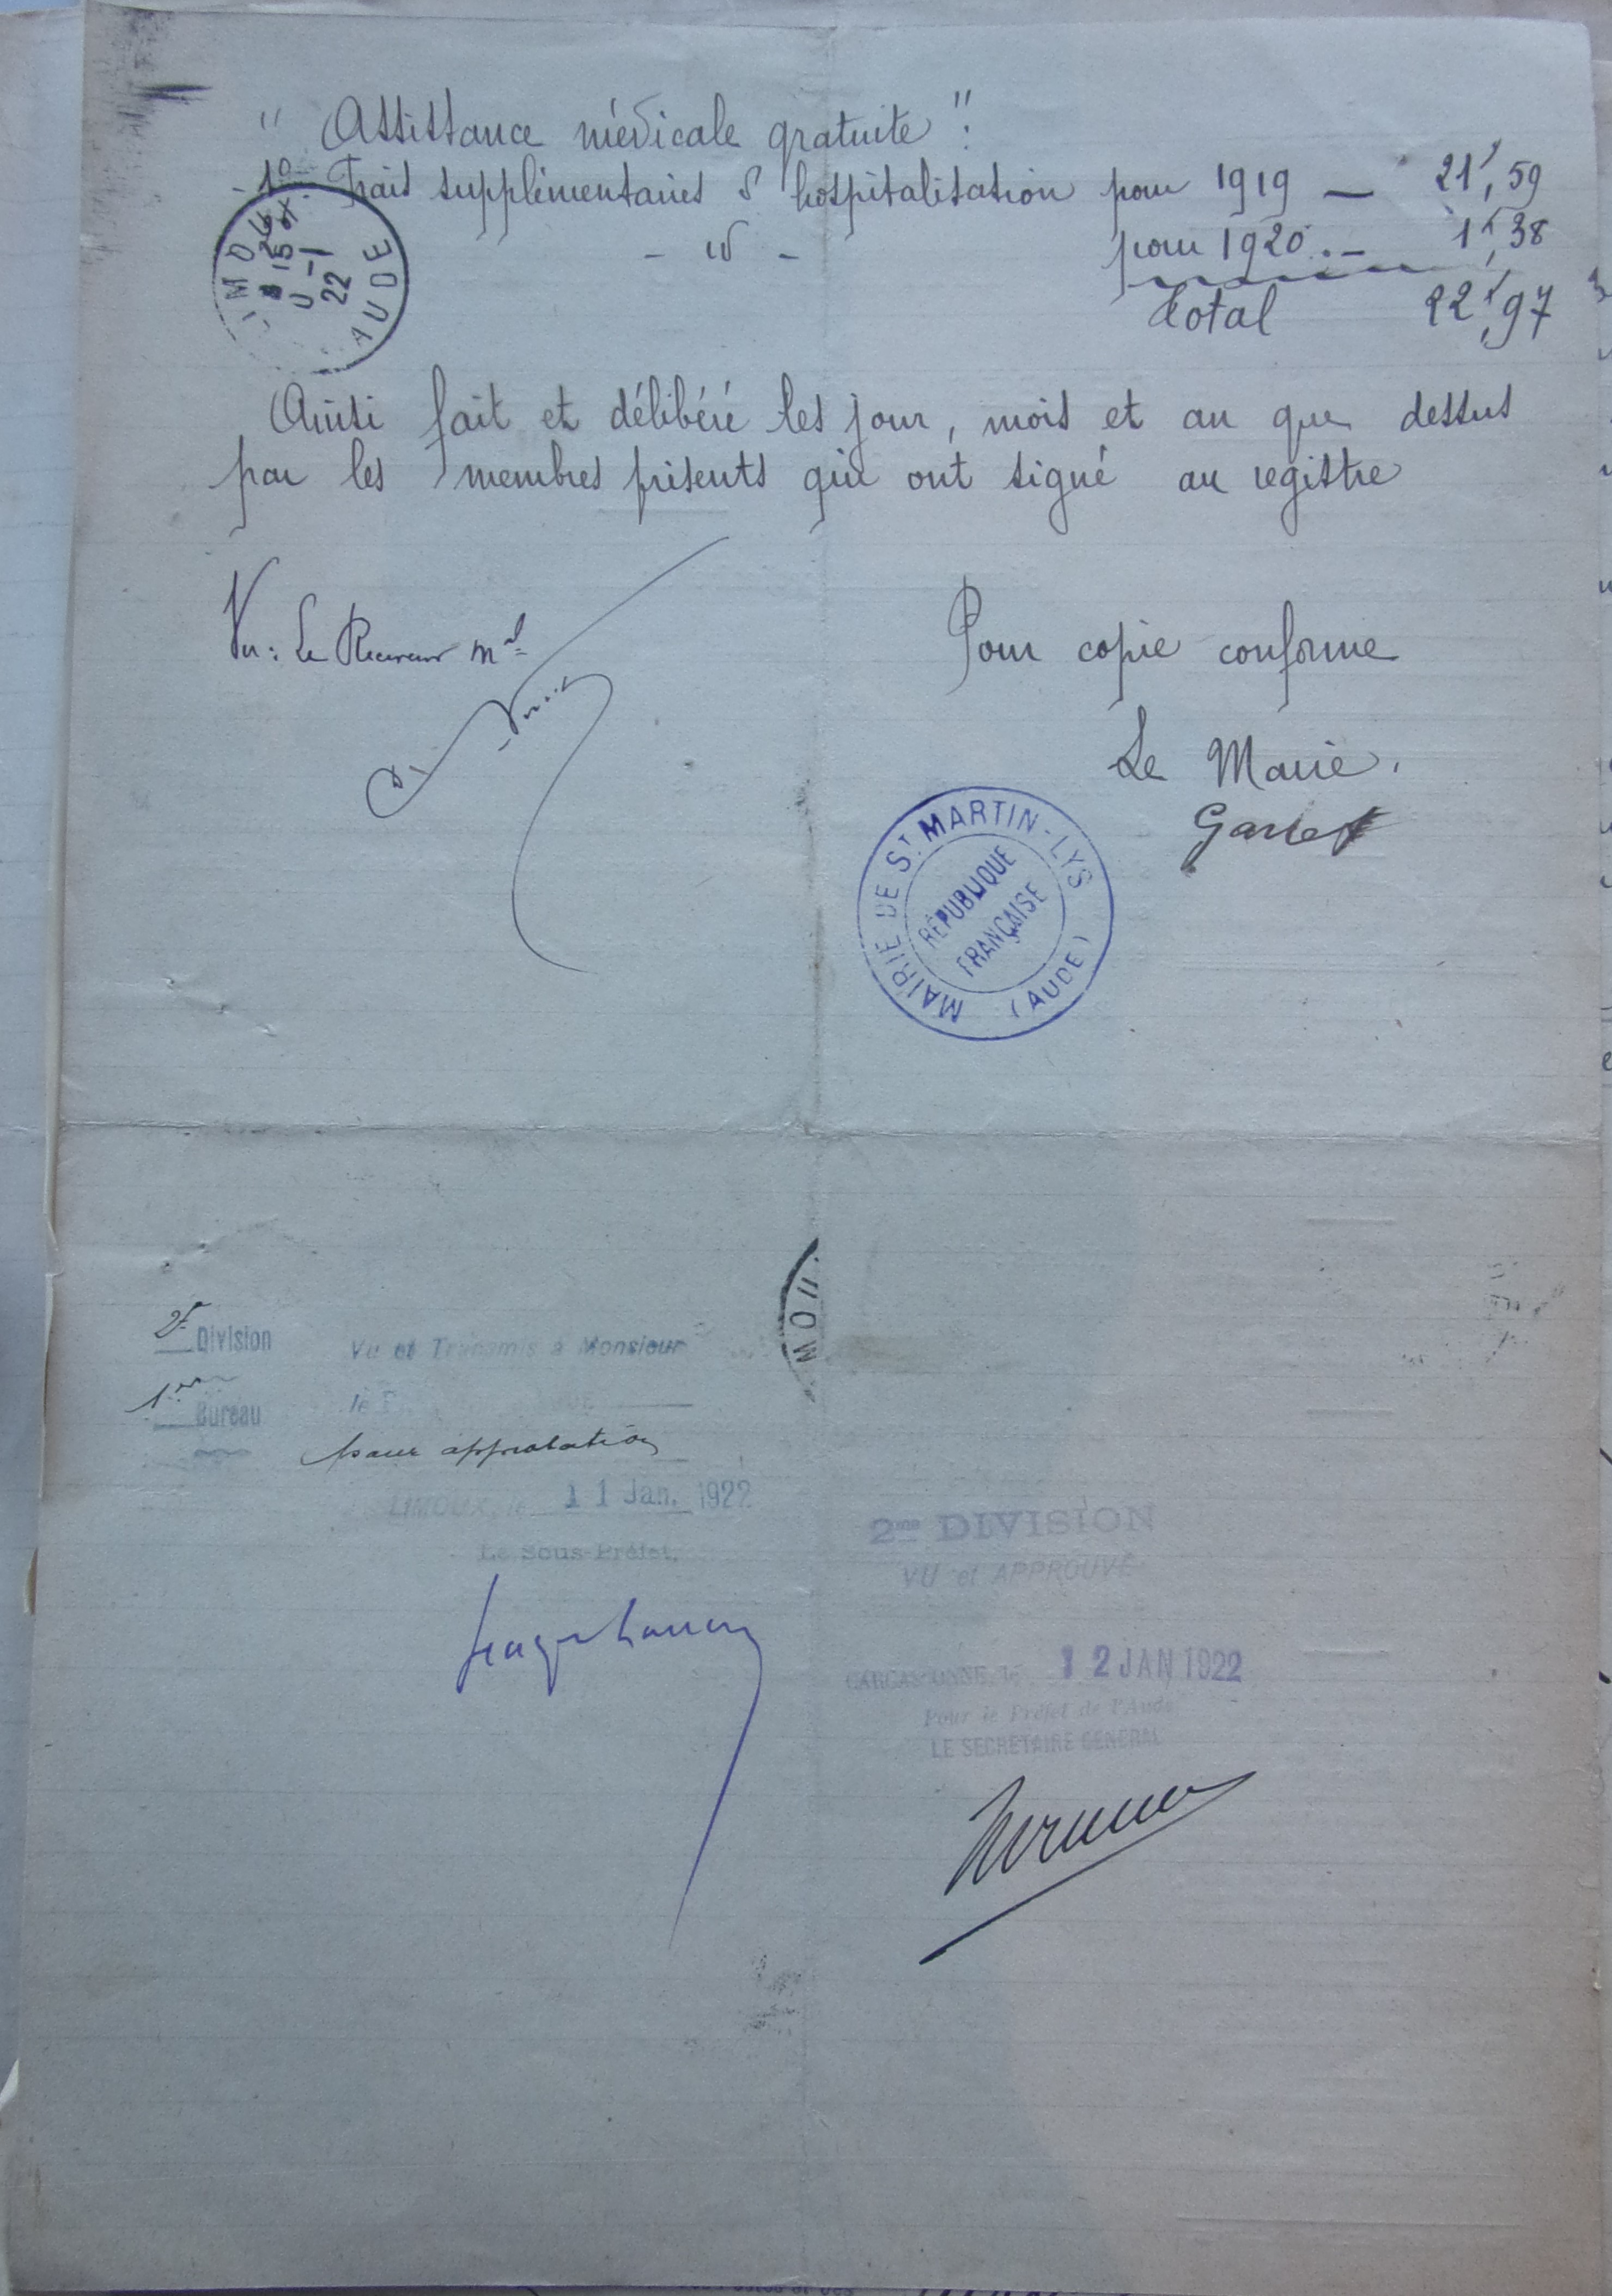 " Assistance médicale gratuite ":
1° Frais supplémentaires d'hospitalisation pour 1919 — 21f,59
- id - pour 1920. — 1f,38
Total 22f,97
AUDE
22
Ainsi fait et délibéré les jour, mois et an que dessus
par les membres présents qui ont signé au registre
Vu : Le Receveur mal
Pour copie conforme
Le Maire.
MAIRIE DE ST MARTIN-LYS
(AUDE)
RÉPUBLIQUE
FRANÇAISE
2e Division
Vu et Transmis à Monsieur
1er Bureau
le
pour approbation
LIMOUX, le 11 Jan. 1922
Le Sous-Préfet,
2me DIVISION
VU et APPROUVÉ
CARCASSONNE, le 12 JAN 1922
Pour le Préfet de l'Aude
LE SECRÉTAIRE GÉNÉRAL